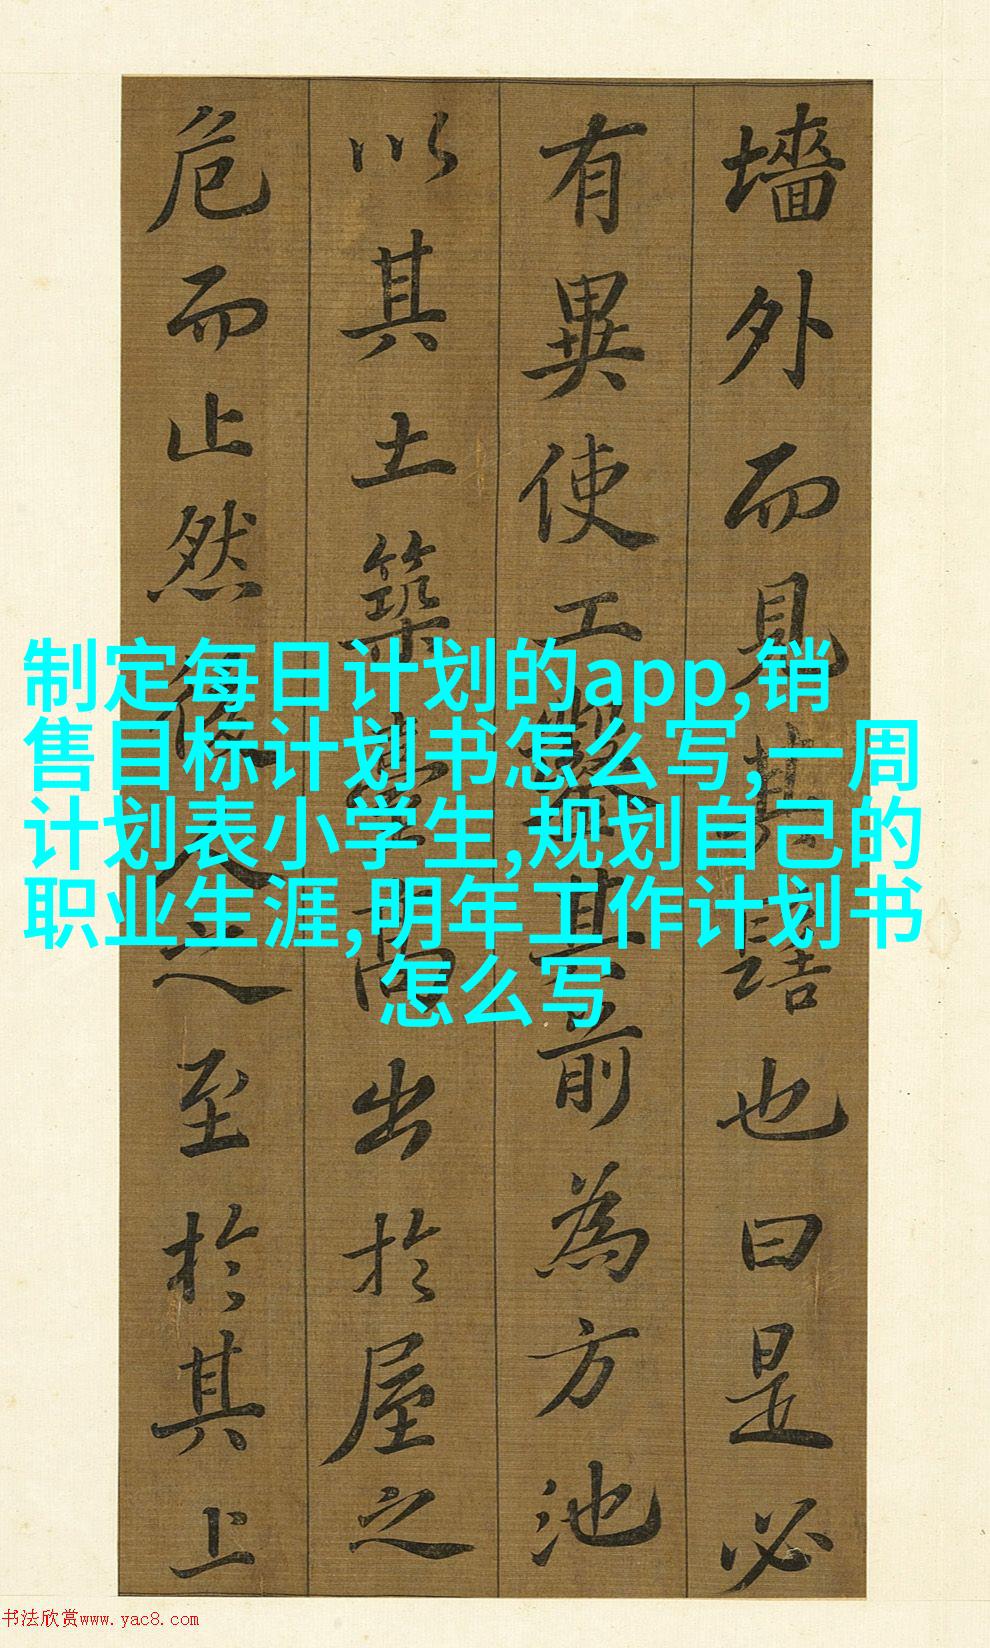 墻外而見其髻也曰是必
有異使工鑿其前為方池
以其土築臺高出於屋之
危而止然後人之至於其上
制定每日计划的app,销
售目标计划书怎么写,一周
计划表小学生,规划自己的
职业生涯,明年工作计划书
怎么写
书法欣赏www.yac8.com